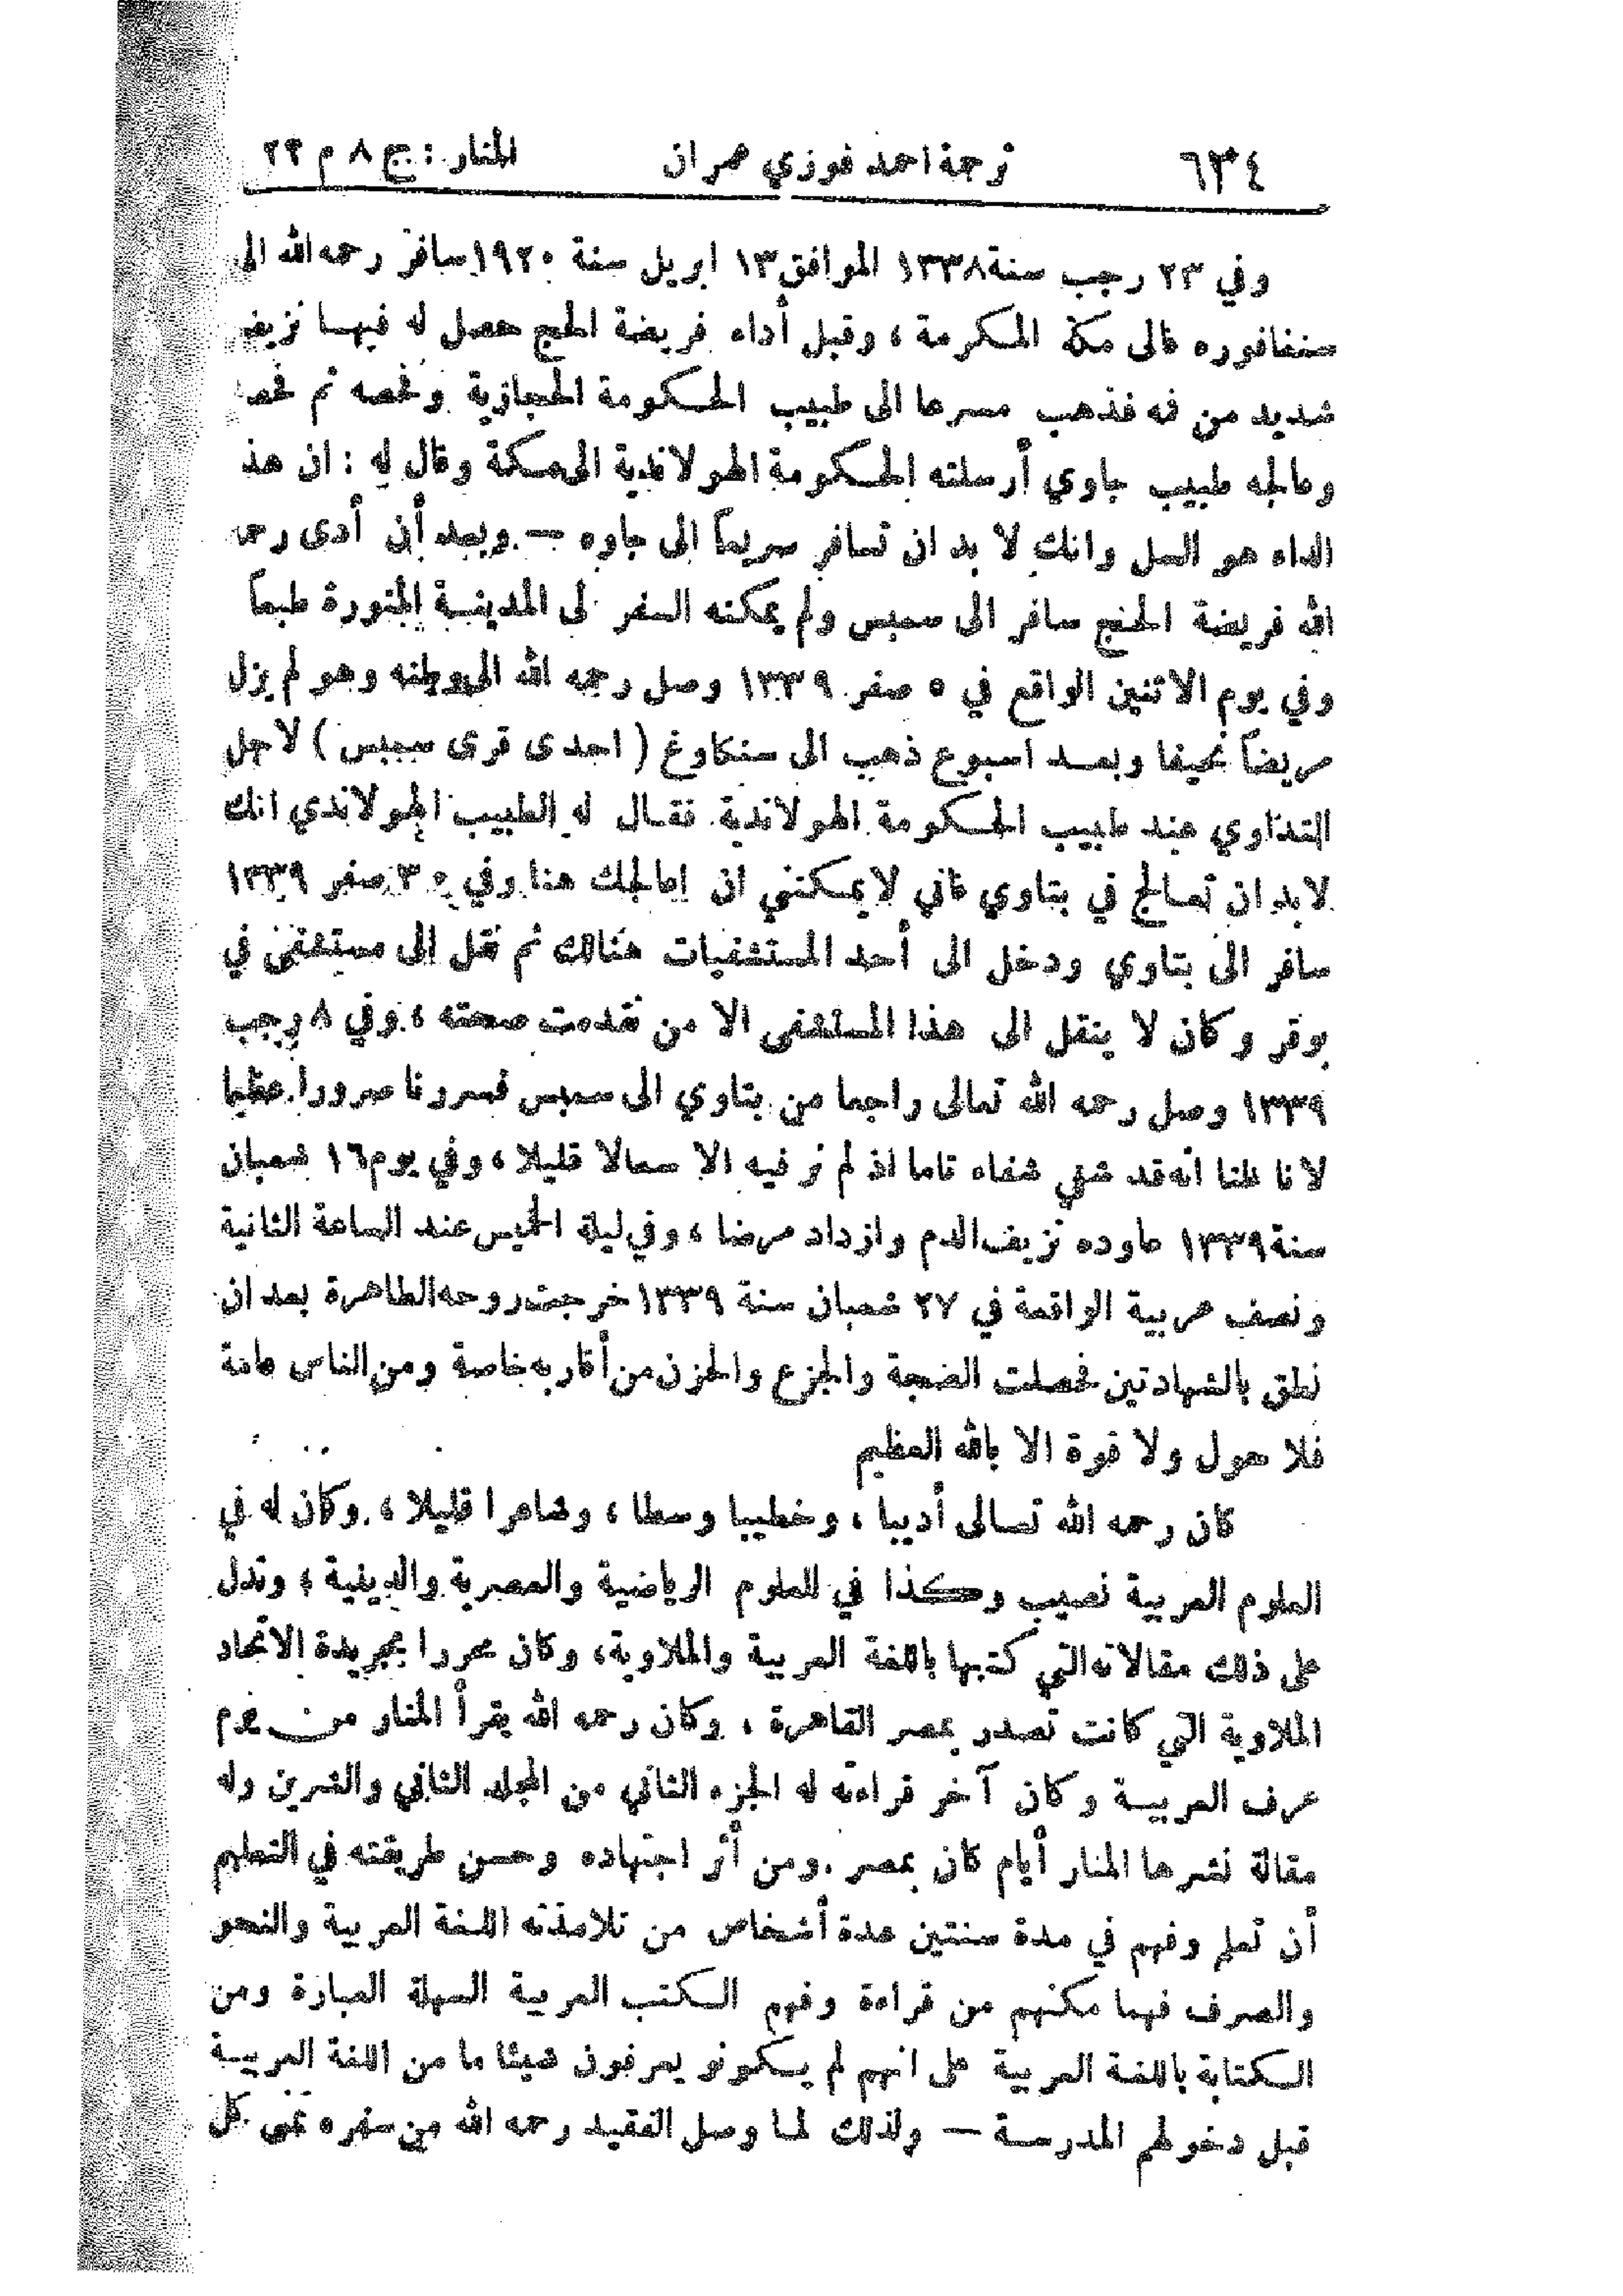 ٦٣٤ ترجمة احمد فوزي عمران المنار : ج ٨ م ٢٢
وفي ٢٣ رجب سنة ١٣٣٨ الموافق ١٣ ابريل سنة ١٩٢٠ سافر رحمه الله الى
سنغافوره فالى مكة المكرمة ، وقبل أداء فريضة الحج حصل له فيها نزيف
شديد من فه فذهب مسرعا الى طبيب الحكومة الحجازية وفحصه ثم فحصه
وعالجه طبيب جاوي أرسلته الحكومة الهولاندية الى مكة وقال له : ان هذ
الداء هو السل وانك لا بد ان تسافر سريعاً الى جاوه — وبعد أن أدى رحمه
الله فريضة الحج سافر الى سمبس ولم يمكنه السفر لى المدينة المنورة طبعاً
وفي يوم الاثنين الواقع في ٥ صفر ١٣٣٩ وصل رحمه الله الى وطنه وهو لم يزل
مريضاً نحيفا وبعد اسبوع ذهب الى سنكاوغ ( احدى قرى سمبس ) لاجل
التداوي عند طبيب الحكومة الهولاندية فقال له الطبيب الهولاندي انك
لابد ان تعالج في بتاوي فاني لايمكنني ان اعالجك هنا وفي ٣٠ صفر ١٣٣٩
سافر الى بتاوي ودخل الى أحد المستشفيات هنالك ثم نقل الى مستشفى في
بوقر وكان لا ينقل الى هذا المستشفى الا من تقدمت صحته ، وفي ٨ رجب
١٣٣٩ وصل رحمه الله تعالى راجعا من بتاوي الى سمبس فسررنا سرورا عظيما
لانا ظننا انه قد شفي شفاء تاما اذ لم نر فيه الا سعالا قليلا ، وفي يوم ١٦ شعبان
سنة ١٣٣٩ عاوده نزيف الدم وازداد مرضا ، وفي ليلة الخميس عند الساعة الثانية
ونصف عربية الواقعة في ٢٧ شعبان سنة ١٣٣٩ خرجت روحه الطاهرة بعد ان
نطق بالشهادتين فحصلت الضجة والجزع والحزن من أقاربه خاصة ومن الناس عامة
فلا حول ولا قوة الا بالله العظيم
كان رحمه الله تعالى أديبا ، وخطيبا وسطا ، وشاعرا قليلا ، وكان له في
العلوم العربية نصيب وكذا في العلوم الرياضية والعصرية والدينية ؛ وتدل
على ذلك مقالاته التي كتبها باللغة العربية والملاوية، وكان محررا بجريدة الاتحاد
الملاوية التي كانت تصدر بمصر القاهرة ، وكان رحمه الله يقرأ المنار من يوم
عرف العربية وكان آخر قراءته له الجزء الثاني من المجلد الثاني والعشرين وله
مقالة نشرها المنار أيام كان بمصر . ومن أثر اجتهاده وحسن طريقته في التعليم
أن تعلم وفهم في مدة سنتين عدة أشخاص من تلامذته اللغة العربية والنحو
والصرف فهما مكنهم من قراءة وفهم الكتب العربية السهلة العبارة ومن
الكتابة باللغة العربية على انهم لم يكونو يعرفون شيئا ما من اللغة العربية
قبل دخولهم المدرسة — ولذلك لما وصل الفقيد رحمه الله من سفره تمنى كل